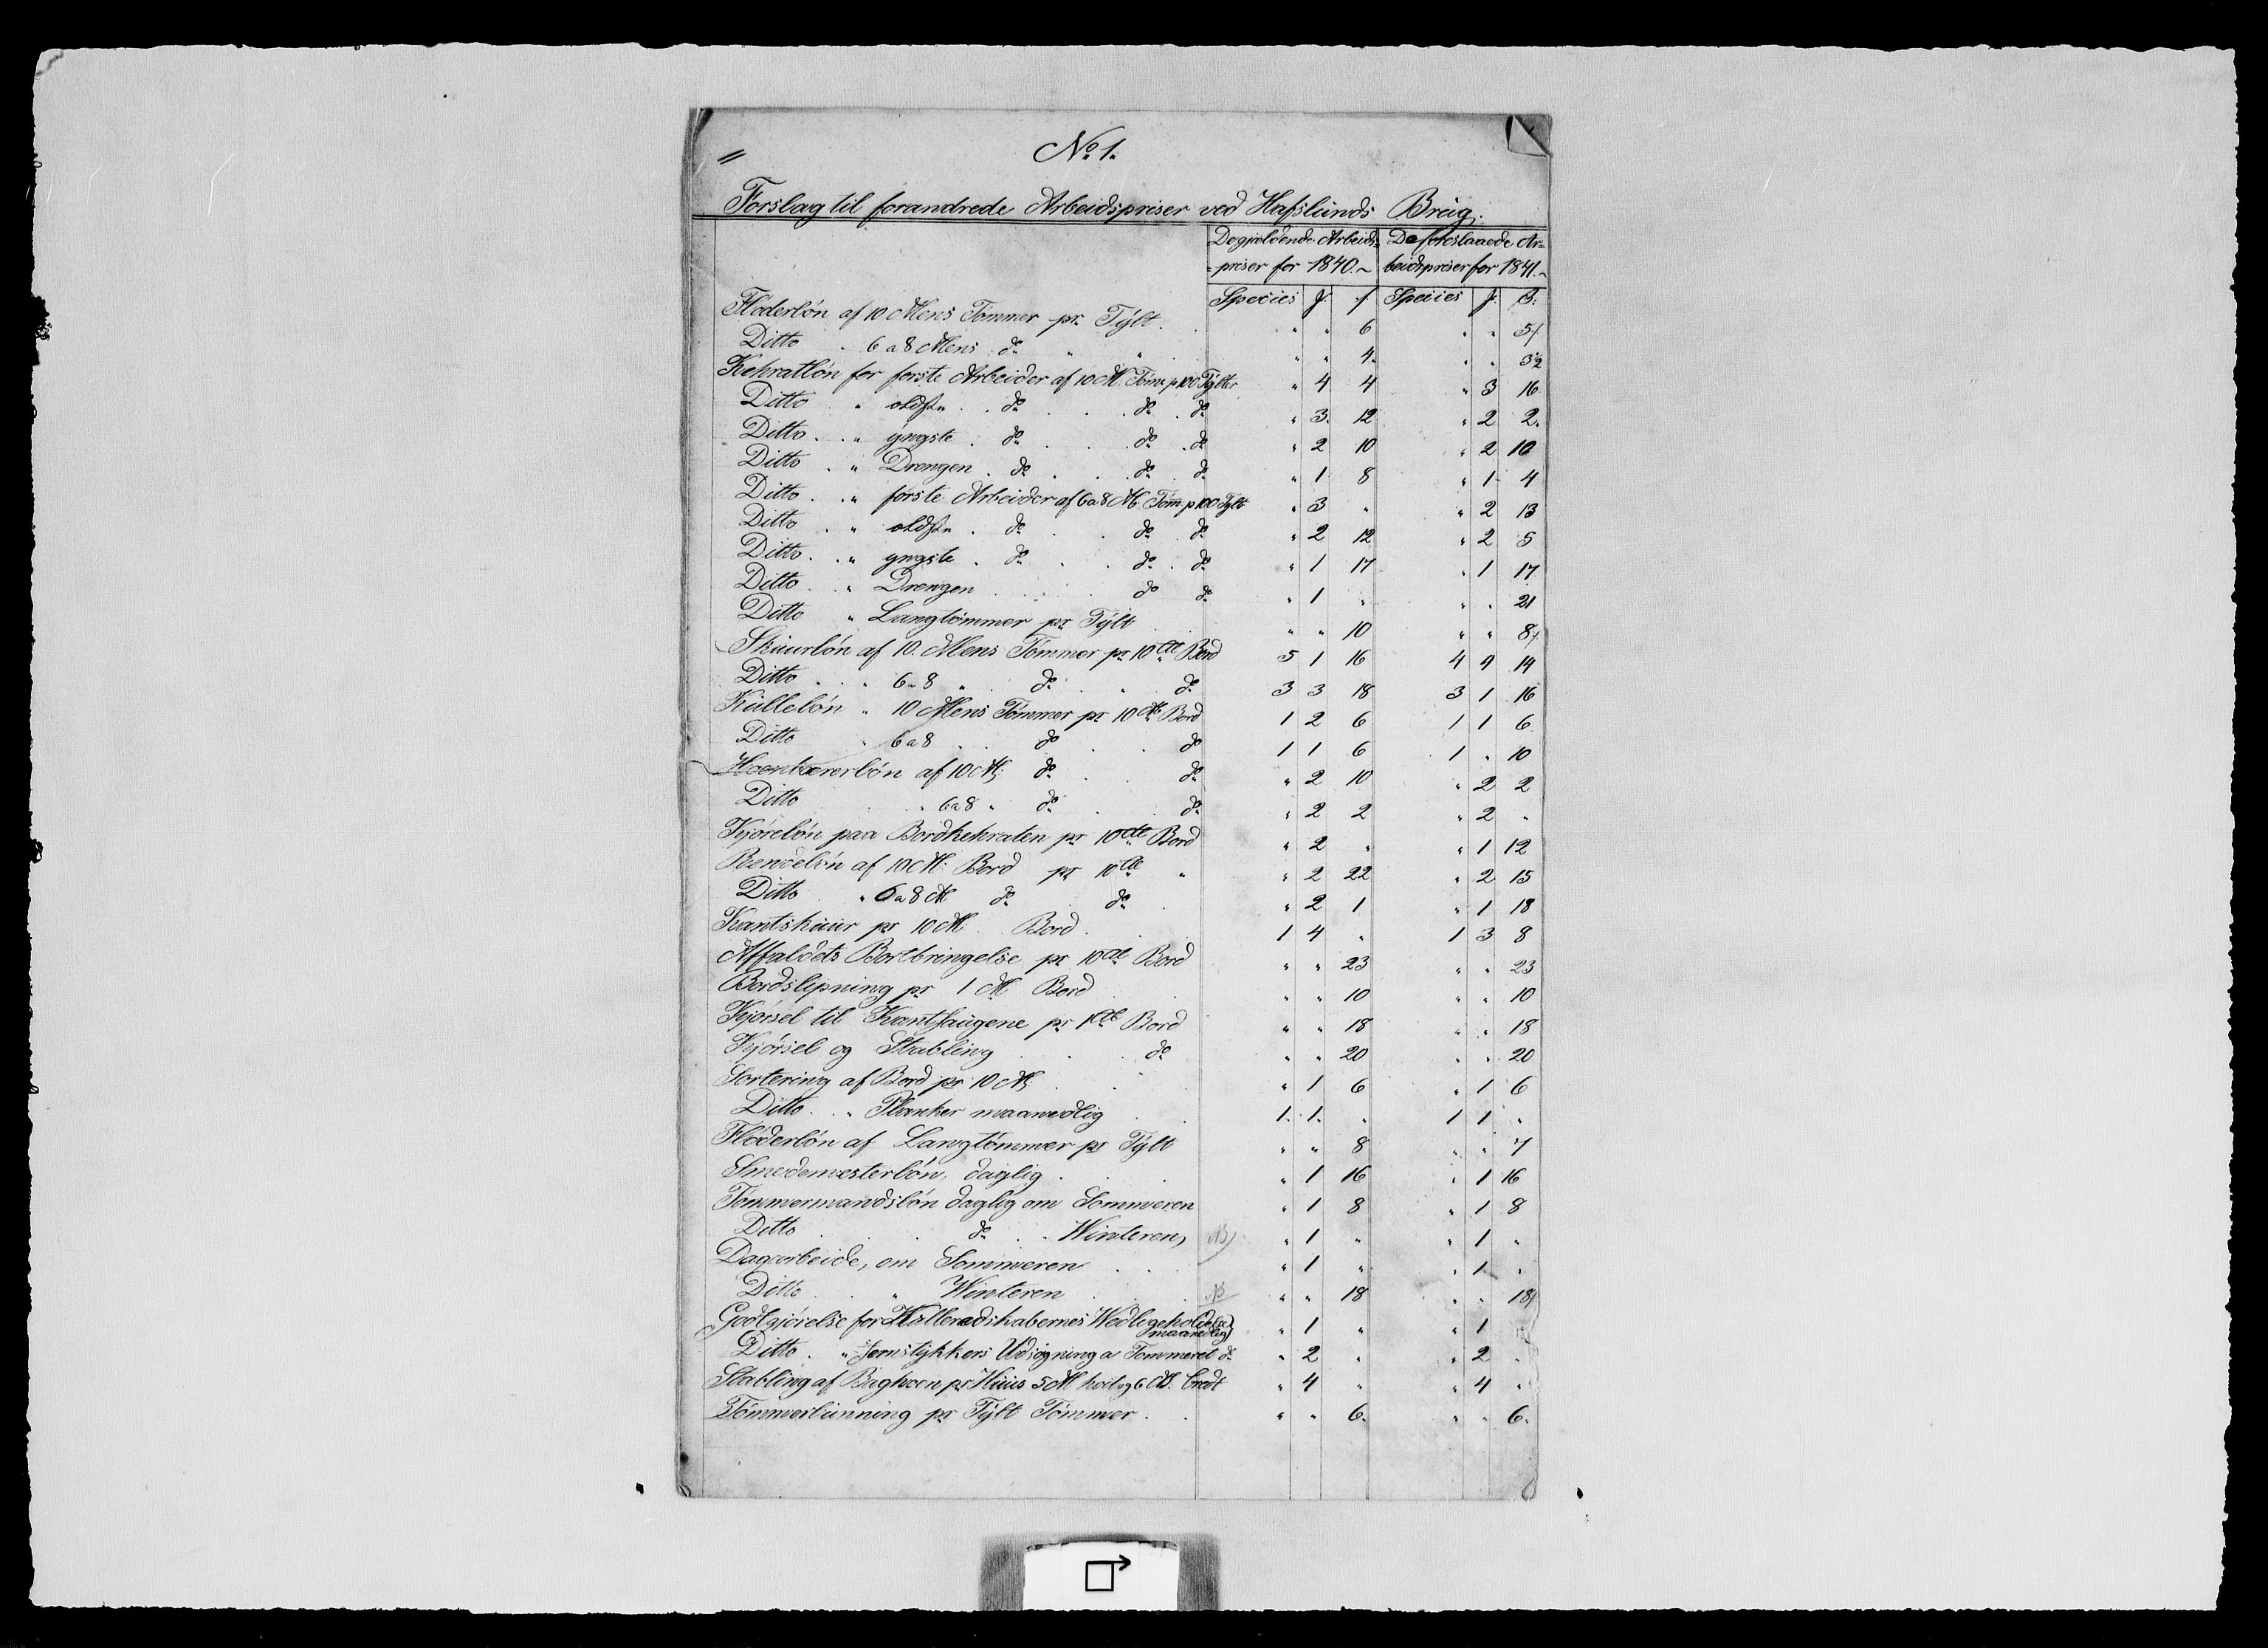 No 1.
Forslag til forandrede Arbeidspriser ved Hafslunds Brug.
De gjældende Arbeids- De foreslaaede Ar-
priser for 1840.~ beidspriser for 1841.~
Species ß Species ß:
Floderlön af 10 Mens Tömmer pr Tylt . . " " 6 " "
Ditto . 6 a 8 Mens do " " " " 4. " " 3½
Kehratlön for förste Arbeider af 10 M. Töm: p 100 Tylter " 4 4 " 3 16
Ditto . " oldste . do . . do . do " 3. 12 " 2 2.
Ditto . . " yngste . do . . do . do " 2 10 " 2 10
Ditto . " Drengen . do . . do . do " 1 8 " 1 4
Ditto . . " förste Arbeider af 6 a 8 M. Töm p 100 Tylt " 3 " " 2 13
Ditto . " oldste . do . . do . do " 2 12 " 2 5
Ditto . . " yngste . do . . do . do " 1 17 " 1 17
Ditto . . " Drengen . . . do do " 1 " " " 21
Ditto " Langtömmer pr Tylt . " " 10 " " 8
Skuurlön af 10. Mens Tömmer pr 10 de Bord 5 1 16 4 4 14
Ditto . . " 6 a 8 " do . " do 3 3 18 3 1 16
Kullelön " 10 Mens Tömmer pr 10 M. Bord 1 2 6 1 1 6
Ditto . 6 a 8 . . do . . do 1 1 6 1 " 10
Hoonbærerlön af 10 M. do . . do " 2 10 " 2 2
Ditto . " 6 a 8 " do . . do " 2 2 " 2 "
Kjörelön paa Bordkehraten pr 10 de Bord " 2 " " 1 12
af 10 M. Bord pr 10 de " " 2 22 " 2 15
Ditto . " 6 a 8 M do . do . " 2 1 " 1 18
Kantskuur pr 10 M. Bord . . 1 4 " 1 3 8
Affaldets Bortbringelse pr 10 de Bord " " 23 " " 23
Bordslipning pr 1 M Bord . . " " 10 " " 10
Kjörsel til Kantsaugene pr Bord " " 18 " " 18
Kjörsel og Stabling . . . do " " 20 " " 20
Sortering af Bord pr 10 M. . . . " 1 6 " 1 6
Ditto . . " Planker maanedlig . . 1. 1. " 1 1 "
Flöderlön af Langtömmer pr Tylt " " 8 " " 7
Smedemesterlön, daglig . . " 1 16 " 1 16
Tömmermandslön daglig om Sommeren " 1 8 " 1 8
Ditto . . . do . . Winteren, NB) " 1 " " 1 "
Dagarbeide, om Sommeren . . . " 1 " " 1 "
Ditto . . " Winteren . . NB " " 18 " " 18
Godtgjörelse for Vedlegeholdelse " 1 " " 1 "
maanedlig)
Ditto . " Jernstykkers Udsögning a Tömmeret do " 2 " " 2 "
Stabling af Baghoen pr Huus 5 M höit og 6 M. bredt " 4 " " 4 "
Tömmerlunning pr Tylt Tömmer . . " " 6. " " 6.